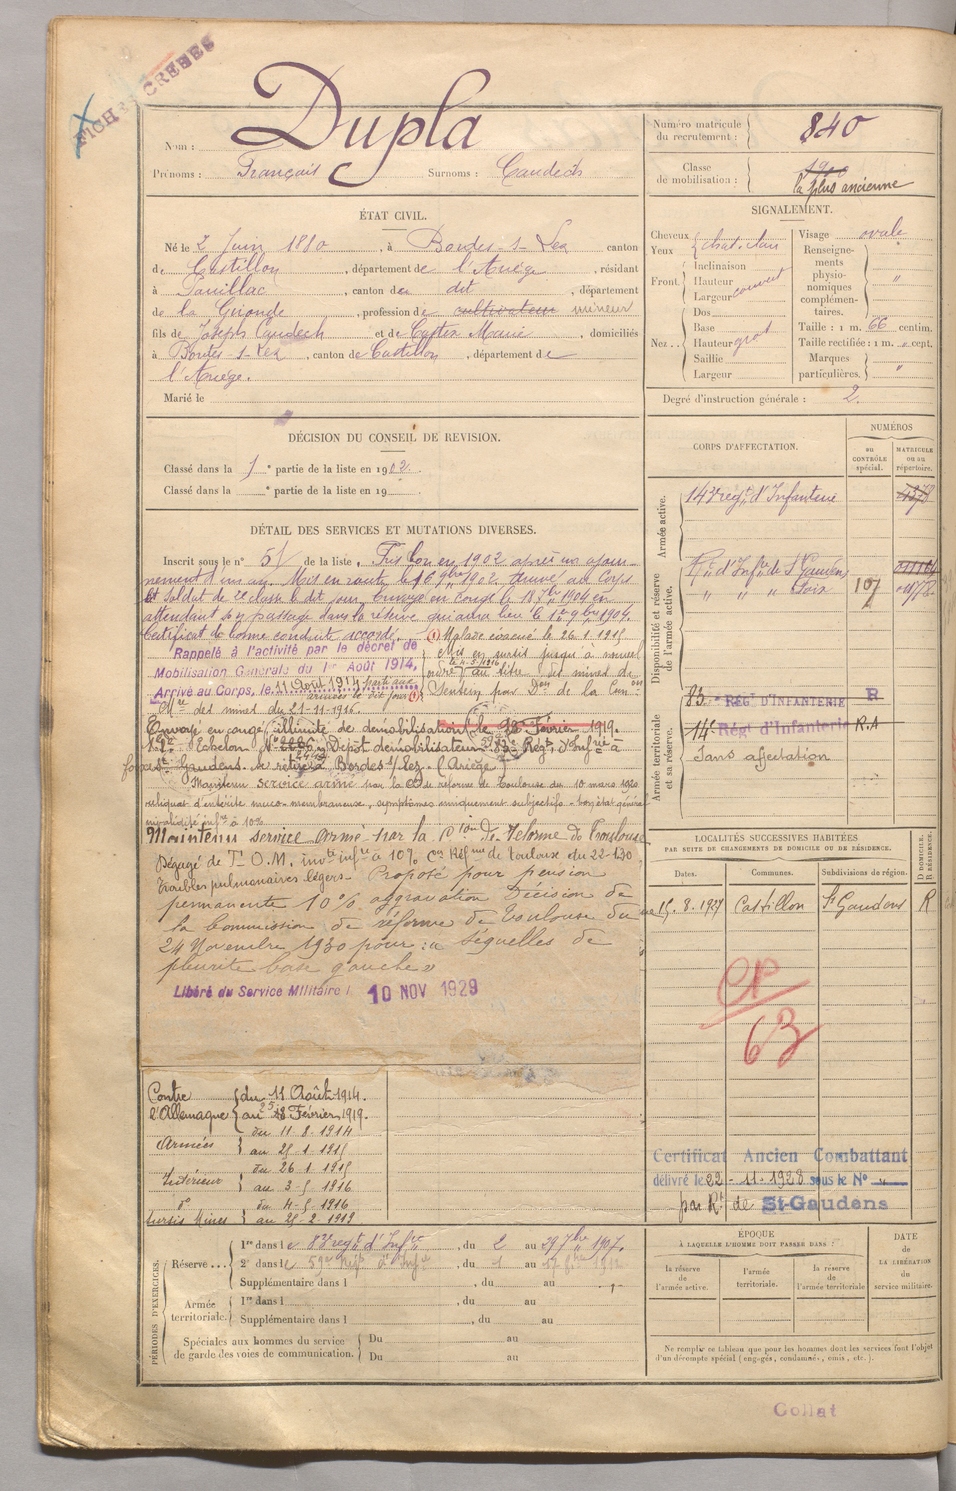 FICHES CREEES
Nom : Dupla
Prénoms : François Surnoms : Caudech
Numéro matricule du recrutement : 840
Classe de mobilisation : 1900
la plus ancienne
ÉTAT CIVIL.
Né le 2 Juin 1880, à Bordes-s-Lez canton
de Castillon, département de l'Ariège, résidant
à Pauillac, canton de dit, département
de la Gironde, profession de cultivateur mineur
fils de Joseph Caudech et de Castex Marie domiciliés
à Bordes-s-Lez, canton de Castillon, département de
l'Ariège.
Marié le
SIGNALEMENT.
Cheveux
Yeux chat. clair
Front.
Inclinaison
Hauteur couvert
Largeur
Nez..
Dos
Base
Hauteur gros
Saillie
Largeur
Visage ovale
Renseignements physionomiques complémentaires. "
Taille : 1 m. 66 centim.
Taille rectifiée : 1 m. " cent.
Marques particulières. "
Degré d'instruction générale : 2.
DÉCISION DU CONSEIL DE REVISION.
Classé dans la 1 e partie de la liste en 1902.
Classé dans la e partie de la liste en 19
DÉTAIL DES SERVICES ET MUTATIONS DIVERSES.
Inscrit sous le n° 51 de la liste. Pris bon en 1902 après un ajour-
nement d'un an. Mis en route le 16 9bre 1902. Arrivé au Corps
et Soldat de 2e classe le dit jour. Envoyé en congé le 18 7bre 1904 en
attendant son passage dans la réserve qui aura lieu le 1er 9bre 1904.
Certificat de bonne conduite accordé. (1) Malade évacué le 26.1.1915
Rappelé à l'activité par le décret de
Mobilisation Générale du 1er Août 1914,
Arrivé au Corps, le 11 Août 1914
mis en sursis jusqu'à nouvel
ordre le 4-5-1916 au titre des mines de
Sentein par Don de la Con
Mre des mines du 21-11-1916
Envoyé en congé illimité de démobilisation le Février 1919.
Echelon Dépôt démobilisateur Régt d'Infrie à
St Gaudens. Se retire à Bordes s/Lez (Ariège)
Maintenu service armé par la C de reforme de Toulouse du 10 mars 1920
reliquat d'entérite muco-membraneuse, symptômes uniquement subjectifs - bon état général
invalidité infre à 10%
Maintenu service armé par la Con de Reforme de Toulouse
Dégagé de T O.M. invté infre à 10% Con Réfme de Toulouse du 22-1-30
Troubles pulmonaires légers. Proposé pour pension
permanente 10% aggravation Décision de
la Commission de réforme de Toulouse du
24 Novembre 1930 pour : « Séquelles de
pleurite base gauche »
Libéré du Service Militaire le 10 NOV 1929
Contre l'Allemagne du 11 Août 1914.
au 25 Février 1919.
Armées du 11.8.1914
au 25-1-1915
Intérieur du 26-1-1915
au 3-5-1916
d° du 4-5-1916
Sursis Mines au 25-2-1919
CORPS D'AFFECTATION.
NUMÉROS
au CONTRÔLE spécial.
MATRICULE ou au répertoire.
Armée active.
143e régt d'Infanterie 1378
Disponibilité et réserve de l'armée active.
Rt d'Infie de St Gaudens
" " " Foix 107 1178
Armée territoriale et sa réserve.
83e RÉGt D'INFANTERIE R
14e Régt d'Infanterie R.A
Sans affectation
LOCALITÉS SUCCESSIVES HABITÉES
PAR SUITE DE CHANGEMENTS DE DOMICILE OU DE RÉSIDENCE.
Dates. Communes. Subdivisions de région. D DOMICILE. R RÉSIDENCE.
15.8.1927 Castillon St Gaudens R
CP
63
Certificat Ancien Combattant
délivré le 22-11-1928 sous le N° "
par Rt de St-Gaudens
PÉRIODES D'EXERCICES.
Réserve...
1re dans le 83e régt d'Infie, du 2 au 29 7bre 1907.
2e dans le 59e Régt d'Infie, du 1 au 17 1912
Supplémentaire dans l , du au
Armée territoriale.
1re dans l , du au
Supplémentaire dans l , du au
Spéciales aux hommes du service de garde des voies de communication.
Du au
Du au
ÉPOQUE
À LAQUELLE L'HOMME DOIT PASSER DANS :
la réserve de l'armée active.
l'armée territoriale.
la réserve de l'armée territoriale
DATE de LA LIBÉRATION du service militaire.
Ne remplir ce tableau que pour les hommes dont les services font l'objet
d'un décompte spécial (engagés, condamnés, omis, etc.).
Collat